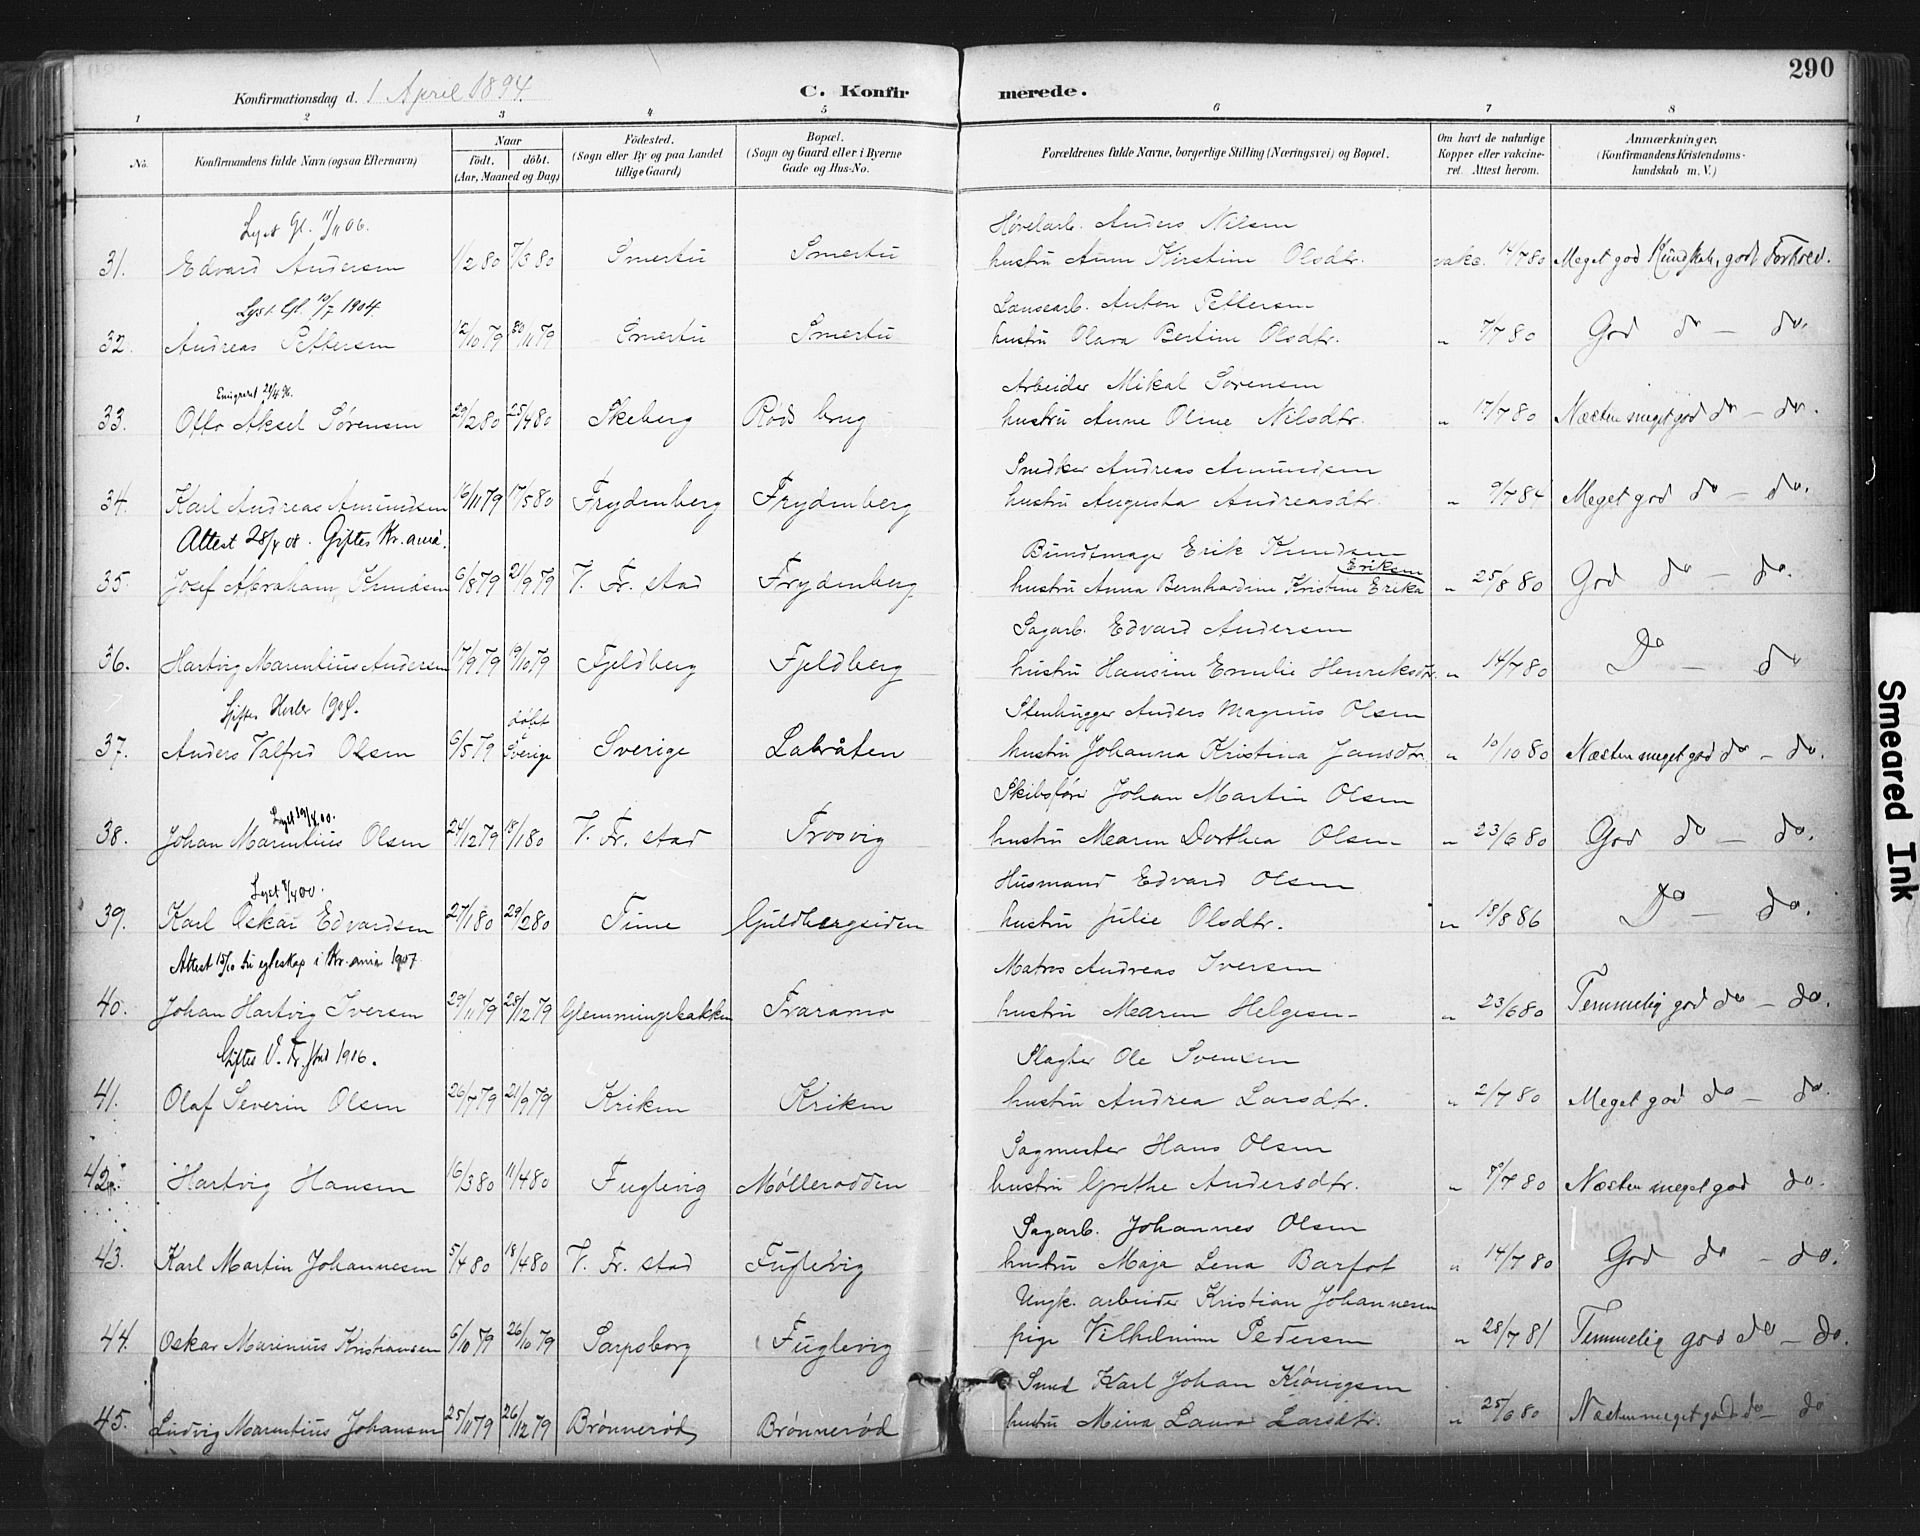 290
Konfirmationsdag d. 1 April 1894.
C. Konfirmerede.
1 2 3 4 5 6 7 8
No. Konfirmandens fulde Navn (ogsaa Efternavn) Naar födt. döbt. (Aar, Maaned og Dag) Födested. (Sogn eller By og paa Landet tillige Gaard) Bopæl. (Sogn og Gaard eller i Byerne Gade og Hus-No. Forældrenes fulde Navne, borgerlige Stilling (Næringsvei) og Bopæl. Om havt de naturlige Kopper eller vakcineret. Attest herom. Anmærkninger. (Konfirmandens Kristendomskundskab m. V.)
Lyst Gl. 11/11 06. Høvelarb. Anders Nilsen
31. Edvard Andersen 1/2 80 7/3 80 Smertu Smertu hustru Anne Kirstine Olsdtr. vakc. 14/7 80 Meget god Kundskab, god Forhold.
Lyst Gl. 10/7 1904 Lænsearb. Anton Pettersen
32. Andreas Pettersen 12/10 79 30/11 79 Smertu Smertu hustru Olava Bertine Olsdtr. " 7/7 80 God do — do.
Emigreret 28/4 96. Arbeider Mikal Sørensen
33. Otto Aksel Sørensen 29/2 80 25/4 80 Skeberg Røds brug hustru Anne Oline Nilsdtr. " 17/7 80 Næsten meget god do — do.
Snedker Andreas Amundsen
34. Karl Andreas Amundsen 16/11 79 17/5 80 Frydenberg Frydenberg hustru Augusta Andreasdtr. " 9/7 84 Meget god do — do.
Attest 28/4 08. Giftes Kr.ania. Bundtmager Erik Knudsen
35. Josef Abraham Knudsen 6/8 79 21/9 79 V. Fr. stad Frydenberg hustru Anna Bernhardine Kristine Erika Eriksen " 25/8 80 God do — do.
Sagarb. Edvard Andersen
36. Hartvig Marentius Andersen 17/9 79 19/10 79 Fjeldberg Fjeldberg hustru Hansine Emelie Henriksdtr. " 14/7 80 Do — do
Giftes 1908. Stenhugger Anders Magnus Olsen
37. Anders Valfred Olsen 6/5 79 døbt i Sverige Sverige Labråten hustru Johanna Kristina Jansdtr. " 10/10 80 Næsten meget god do — do.
Lyst 19/4 00. Skibsfører Johan Martin Olsen
38. Johan Marentius Olsen 24/12 79 18/1 80 V. Fr. stad Trosvig hustru Maren Dorthea Olsen " 23/6 80 God do — do.
Lyst 8/4 00. Husmand Edvard Olsen
39. Karl Oskar Edvardsen 27/1 80 29/2 80 Tune Guldbergsiden hustru Julie Olsdtr. " 18/8 86 Do — do.
Attest 15/10 til egteskap i Kr.ania 1907 Matros Andreas Iversen
40. Johan Hartvig Iversen 29/11 79 28/12 79 Glemmingebakken Traramo hustru Maren Helgesen " 23/6 80 Temmelig god do — do.
Giftes V. Fr.stad 1906. Slagter Ole Svensen
41. Olaf Severin Olsen 26/7 79 21/9 79 Kriken Kriken hustru Andrea Larsdtr. " 2/7 80 Meget god do — do.
Sagmester Hans Olsen
42. Hartvig Hansen 16/3 80 11/4 80 Fuglevig Møllerodden hustru Grethe Andersdtr. " 7/7 80 Næsten meget god do.
Sagarb. Johannes Olsen
43. Karl Martin Johannesen 5/4 80 18/4 80 V. Fr. stad Fuglevig hustru Maja Lena Barfot " 14/7 80 God do — do.
Ungk. arbeider Kristian Johannesen
44. Oskar Marinius Kristiansen 6/10 79 26/10 79 Sarpsborg Fuglevig pige Vilhelmine Pedersen " 28/7 81 Temmelig god do — do.
Smed Karl Johan Kiönigsen
45. Ludvig Marentius Johansen 25/11 79 26/12 79 Brønnerød Brønnerød hustru Mina Laura Larsdtr. " 25/6 80 Næsten meget god do — do
Smeared Ink